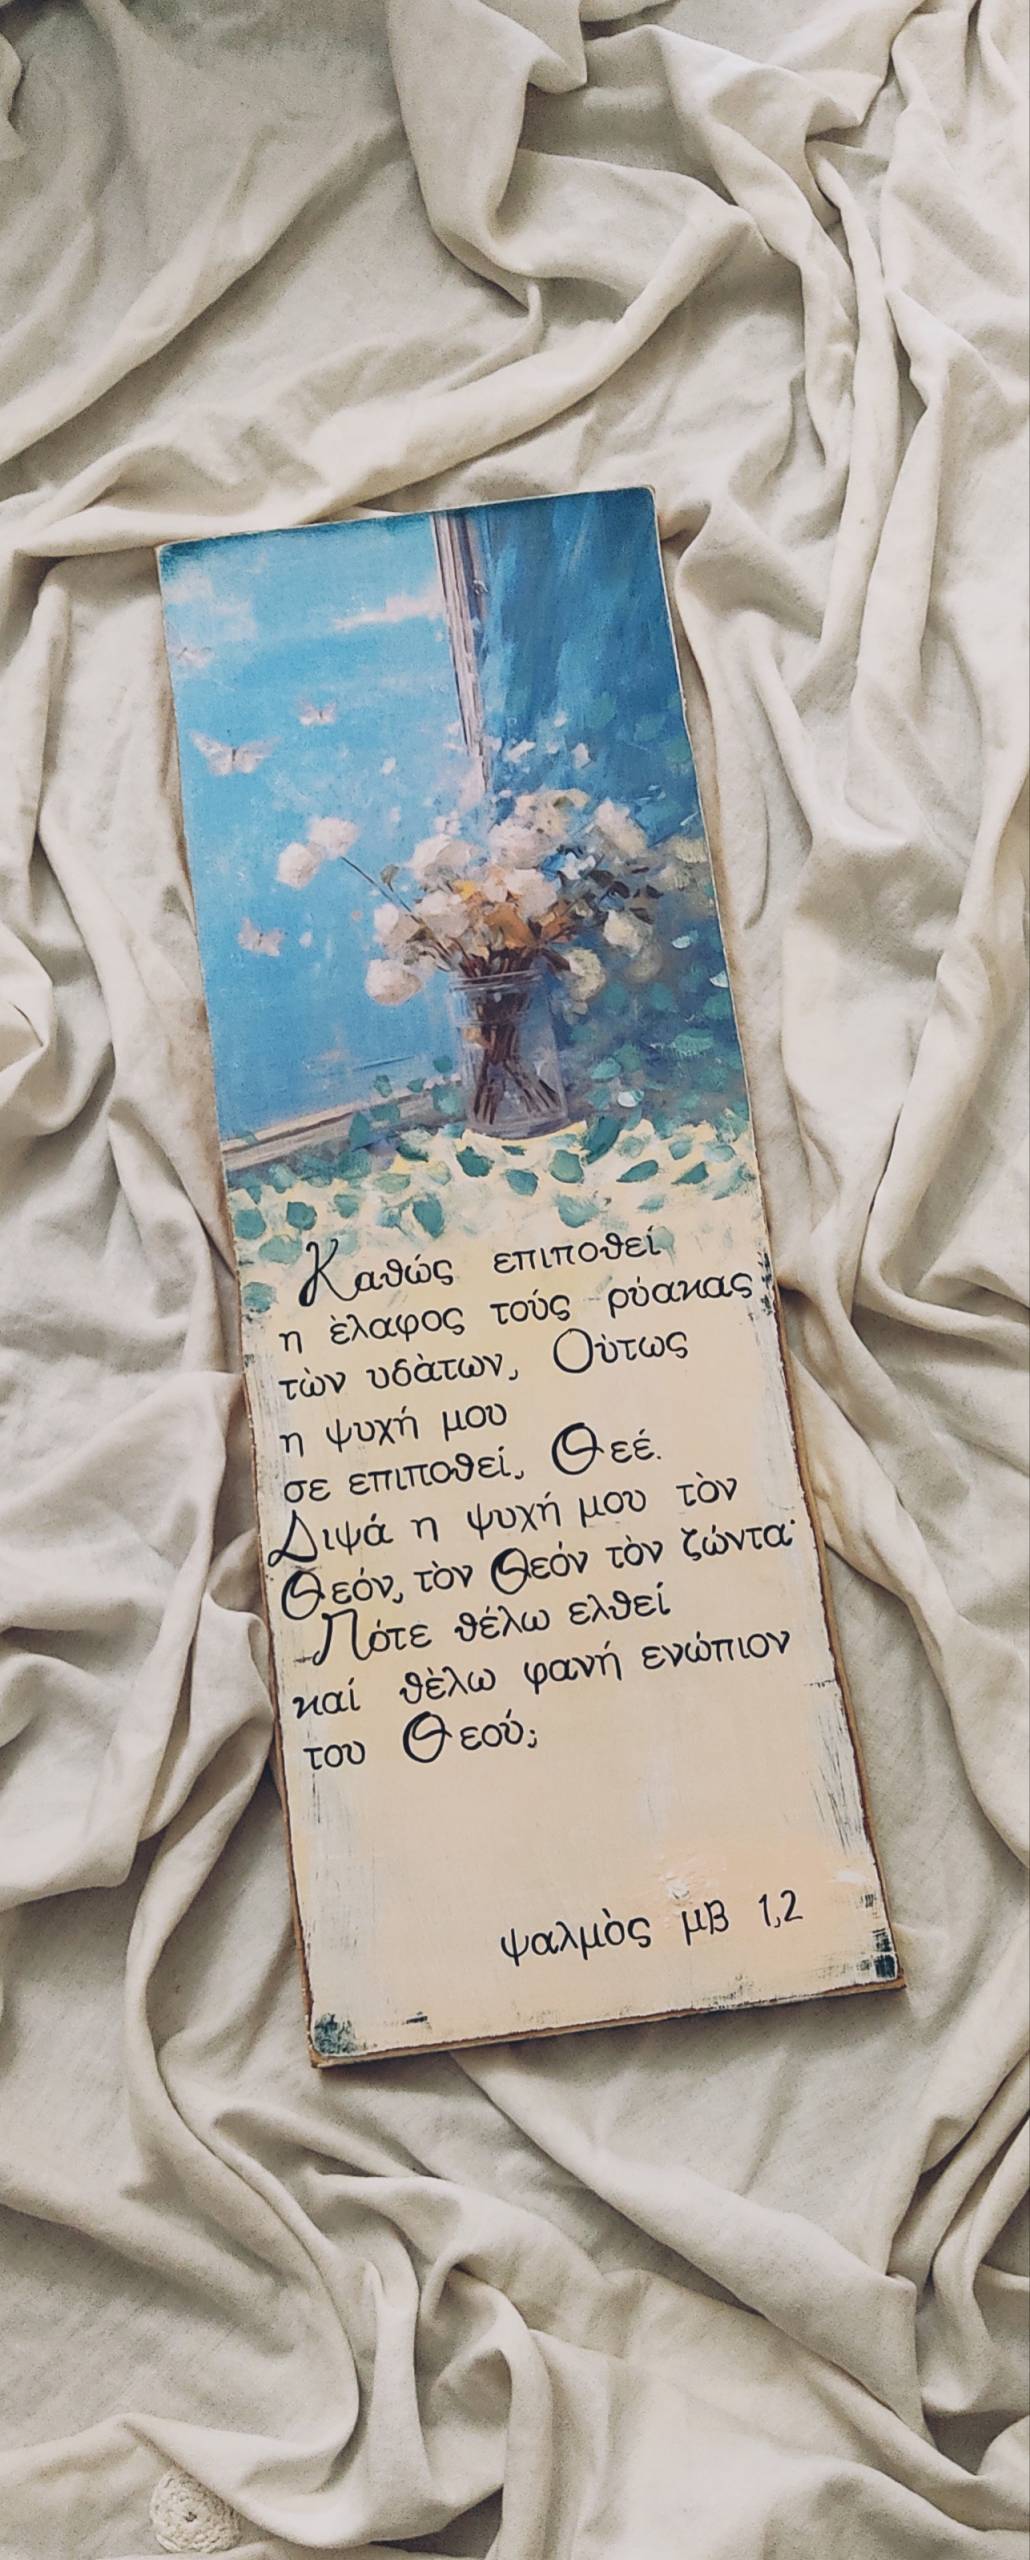 Καθώς επιποθεί
η ὲλαφος τούς ρύακας
τὼν υδὰτων, Οὺτως
η ψυχή μου
σε επιποθεί, Θεέ.
Διψά η ψυχή μου τὸν
Θεόν, τὸν Θεόν τὸν ζώντα·
Πότε θέλω ελθεί
καί θὲλω φανή ενώπιον
του Θεού;
ψαλμὸς μΒ 1,2